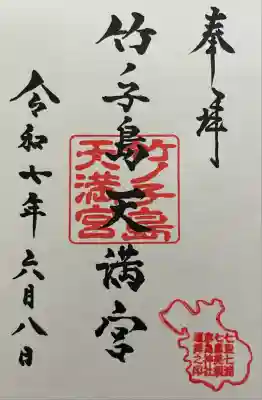 奉拝
竹ノ子島天満宮
竹ノ子島
天満宮
令和七年六月八日